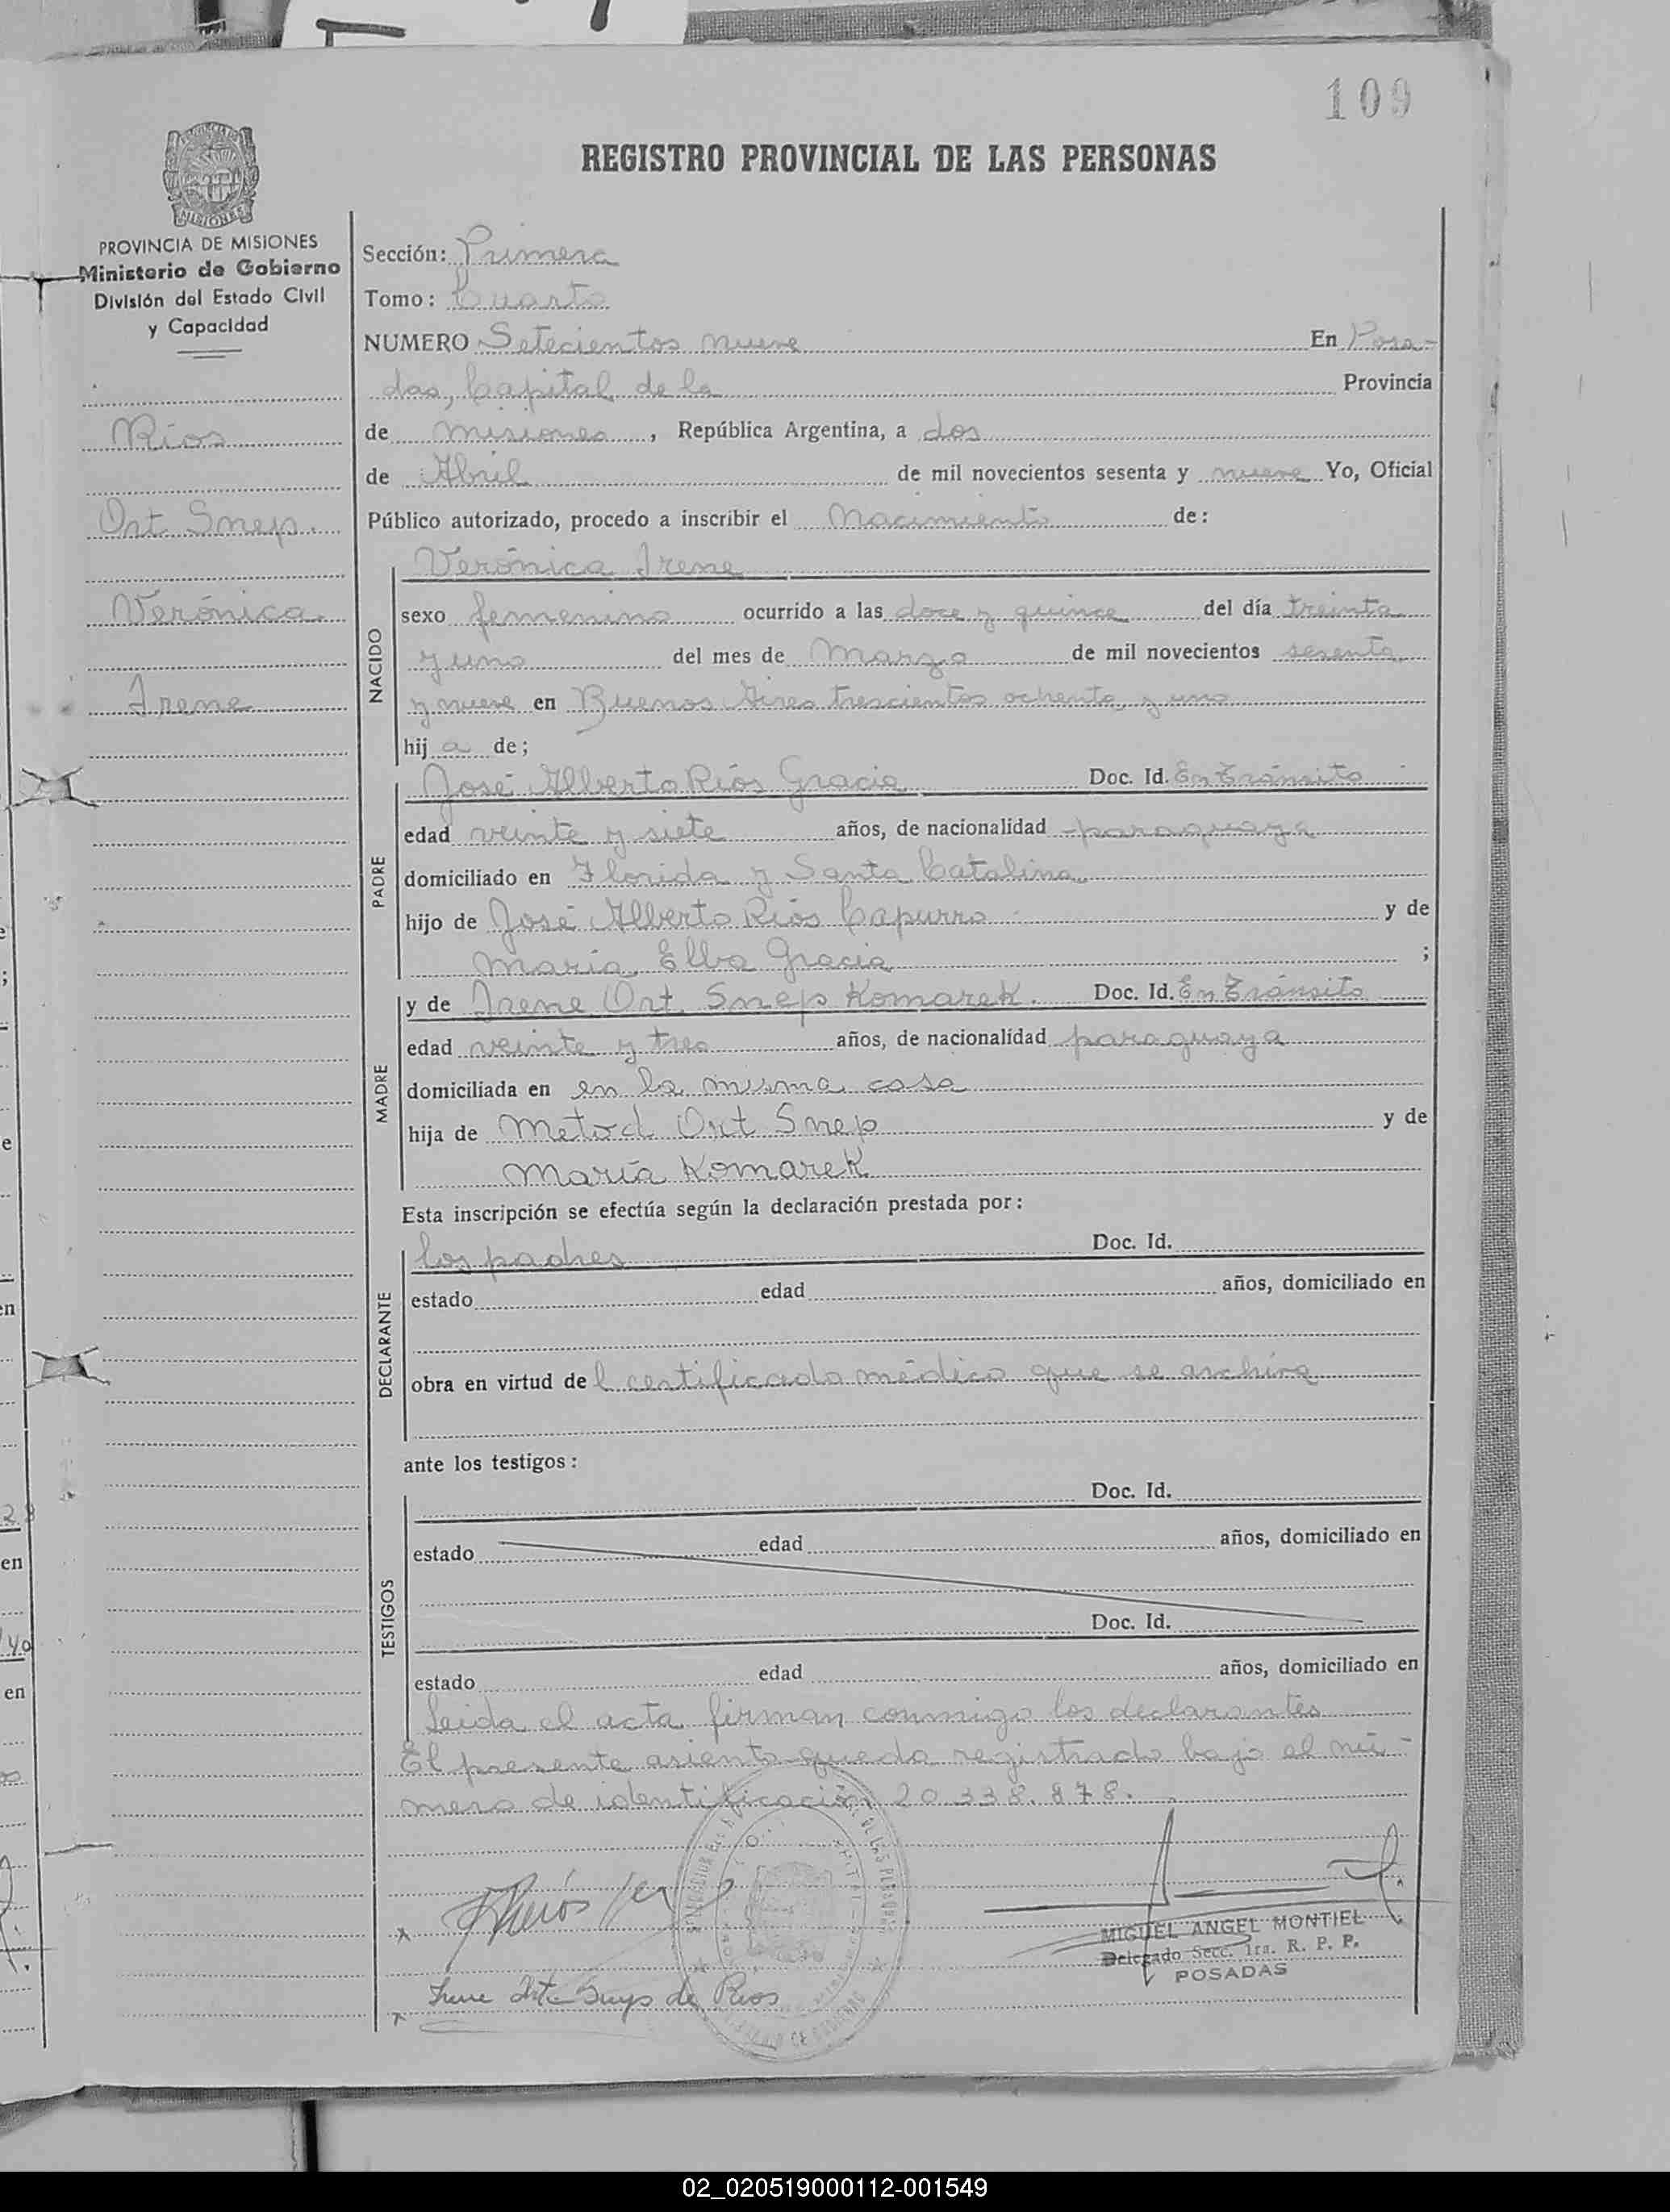 109
REGISTRO PROVINCIAL DE LAS PERSONAS
MISIONES
PROVINCIA DE MISIONES
Ministerio de Gobierno
División del Estado Civil
y Capacidad
Ríos
Ort Snep.
Verónica
Irene
Sección: Primera
Tomo: Cuarto
NUMERO Setecientos nueve En Posa-
das, Capital de la Provincia
de Misiones, República Argentina, a dos
de Abril de mil novecientos sesenta y nueve Yo, Oficial
Público autorizado, procedo a inscribir el Nacimiento de:
NACIDO
Verónica Irene
sexo femenino ocurrido a las doce y quince del día treinta
y uno del mes de Marzo de mil novecientos sesenta
y nueve en Buenos Aires trescientos ochenta y uno
hij a de;
PADRE
José Alberto Ríos Gracia Doc. Id. En Tránsito
edad veinte y siete años, de nacionalidad paraguaya
domiciliado en Florida y Santa Catalina
hijo de José Alberto Ríos Capurro y de
María Elba Gracia ;
MADRE
y de Irene Ort Snep Komarek. Doc. Id. En Tránsito
edad veinte y tres años, de nacionalidad paraguaya
domiciliada en en la misma casa
hija de Metod Ort Snep y de
María Komarek
Esta inscripción se efectúa según la declaración prestada por:
DECLARANTE
los padres Doc. Id.
estado edad años, domiciliado en
obra en virtud de l certificado médico que se archiva
ante los testigos:
TESTIGOS
Doc. Id.
estado edad años, domiciliado en
Doc. Id.
estado edad años, domiciliado en
Leida el acta firman conmigo los declarantes
El presente asiento queda registrado bajo el nú-
mero de identificación 20.338.878.
MIGUEL ANGEL MONTIEL
Delegado Secc. 1ra. R. P. P.
POSADAS
de Rios
02_020519000112-001549